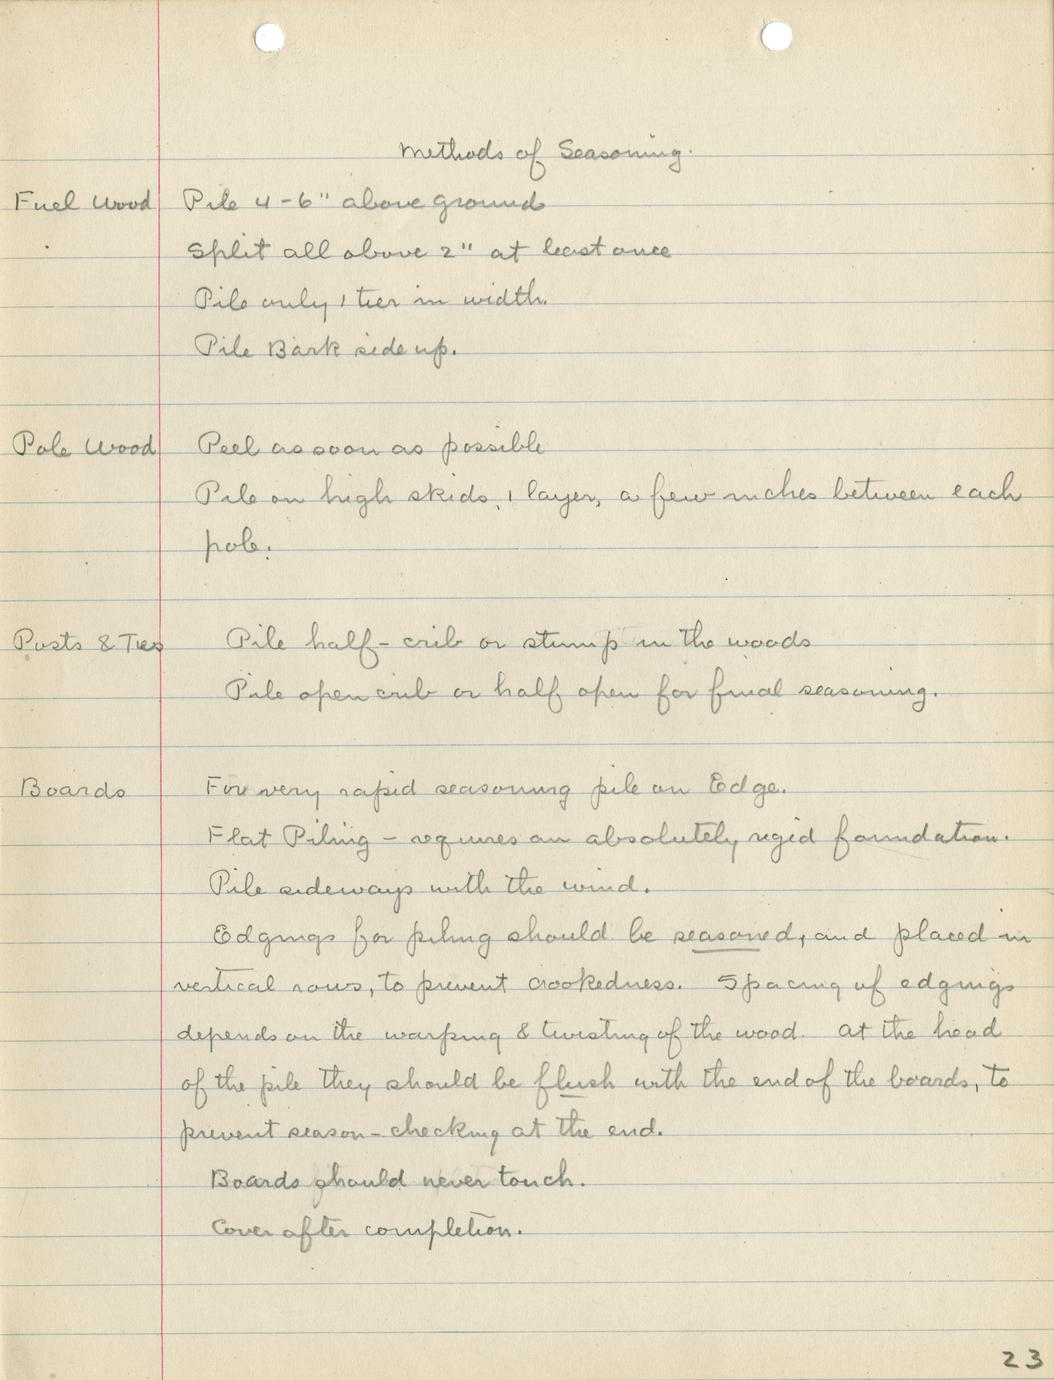 Methods of Seasoning.
Fuel Wood Pile 4-6" above ground
Split all above 2" at least once
Pile only 1 tier in width.
Pile Bark side up.
Pole Wood Peel as soon as possible
Pile on high skids, 1 layer, a few inches between each
pole.
Posts & Ties Pile half-crib or stump in the woods
Pile open crib or half open for final seasoning.
Boards For very rapid seasoning pile on Edge.
Flat Piling - requires an absolutely rigid foundation.
Pile sideways with the wind.
Edgings for piling should be seasoned, and placed in
vertical rows, to prevent crookedness. Spacing of edgings
depends on the warping & twisting of the wood. At the head
of the pile they should be flush with the end of the boards, to
prevent season-checking at the end.
Boards should never touch.
Cover after completion.
23